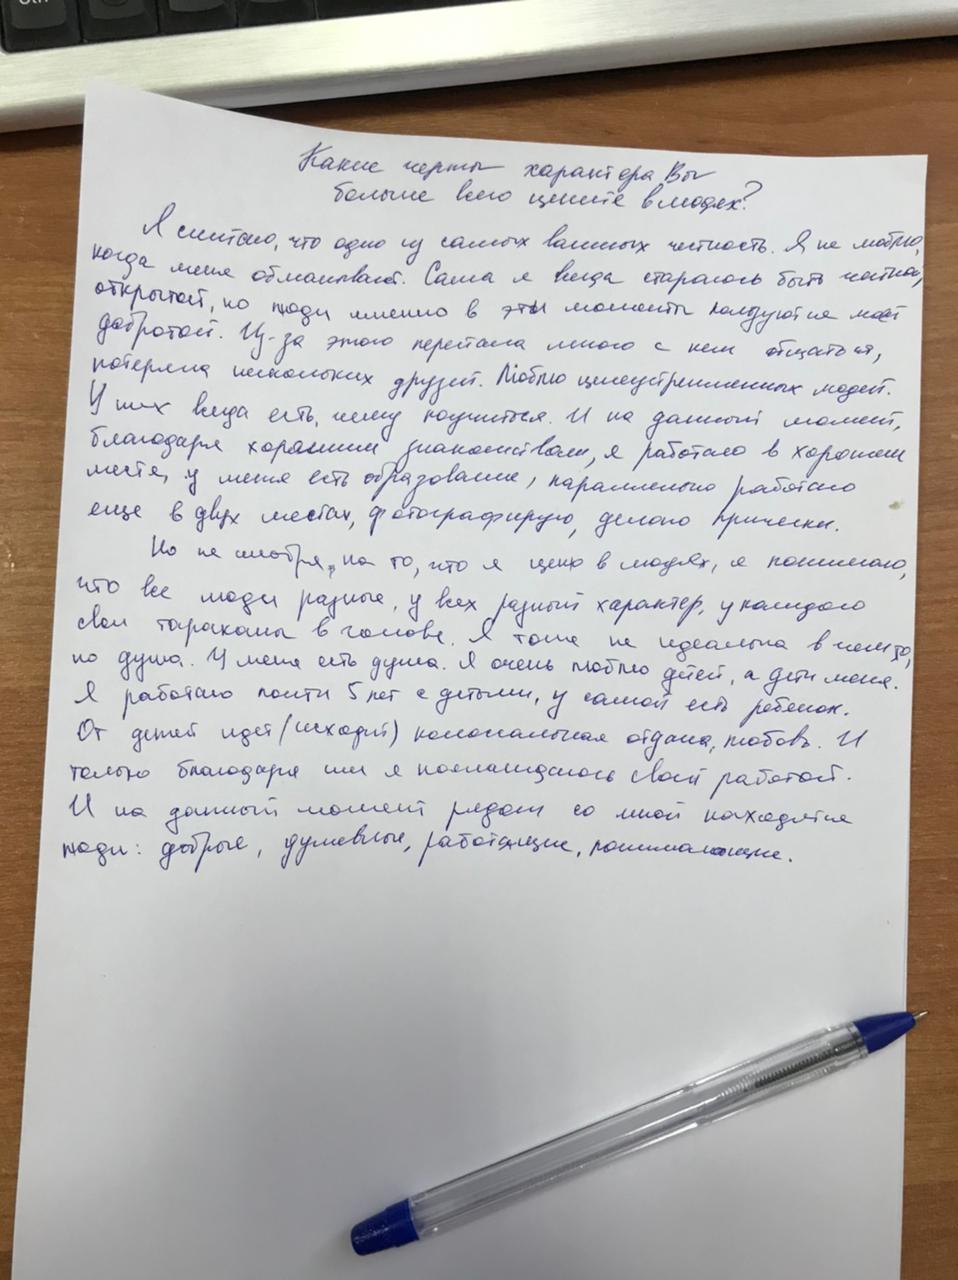 Какие черты характера Вы
больше всего цените в людях?
Я считаю, что одно из самых важных честность. Я не люблю,
когда меня обманывают. Сама я всегда стараюсь быть честной,
открытой, но люди именно в эти моменты пользуются моей
добротой. Из-за этого перестала много с кем общаться,
потеряла нескольких друзей. Люблю целеустремленных людей.
У них всегда есть, чему научиться. И на данный момент,
благодаря хорошим знакомствам, я работаю в хорошем
месте, у меня есть образование, параллельно работаю
еще в двух местах, фотографирую, делаю прически.
Но не смотря, на то, что я ценю в людях, я понимаю,
что все люди разные, у всех разный характер, у каждого
свои тараканы в голове. Я тоже не идеальна в чем то,
но душа. У меня есть душа. Я очень люблю детей, а дети меня.
Я работаю почти 5 лет с детьми, у самой есть ребенок.
От детей идет (исходит) колоссальная отдача, любовь. И
только благодаря им я наслаждаюсь своей работой.
И на данный момент рядом со мной находятся
люди: добрые, душевные, работящие, понимающие.